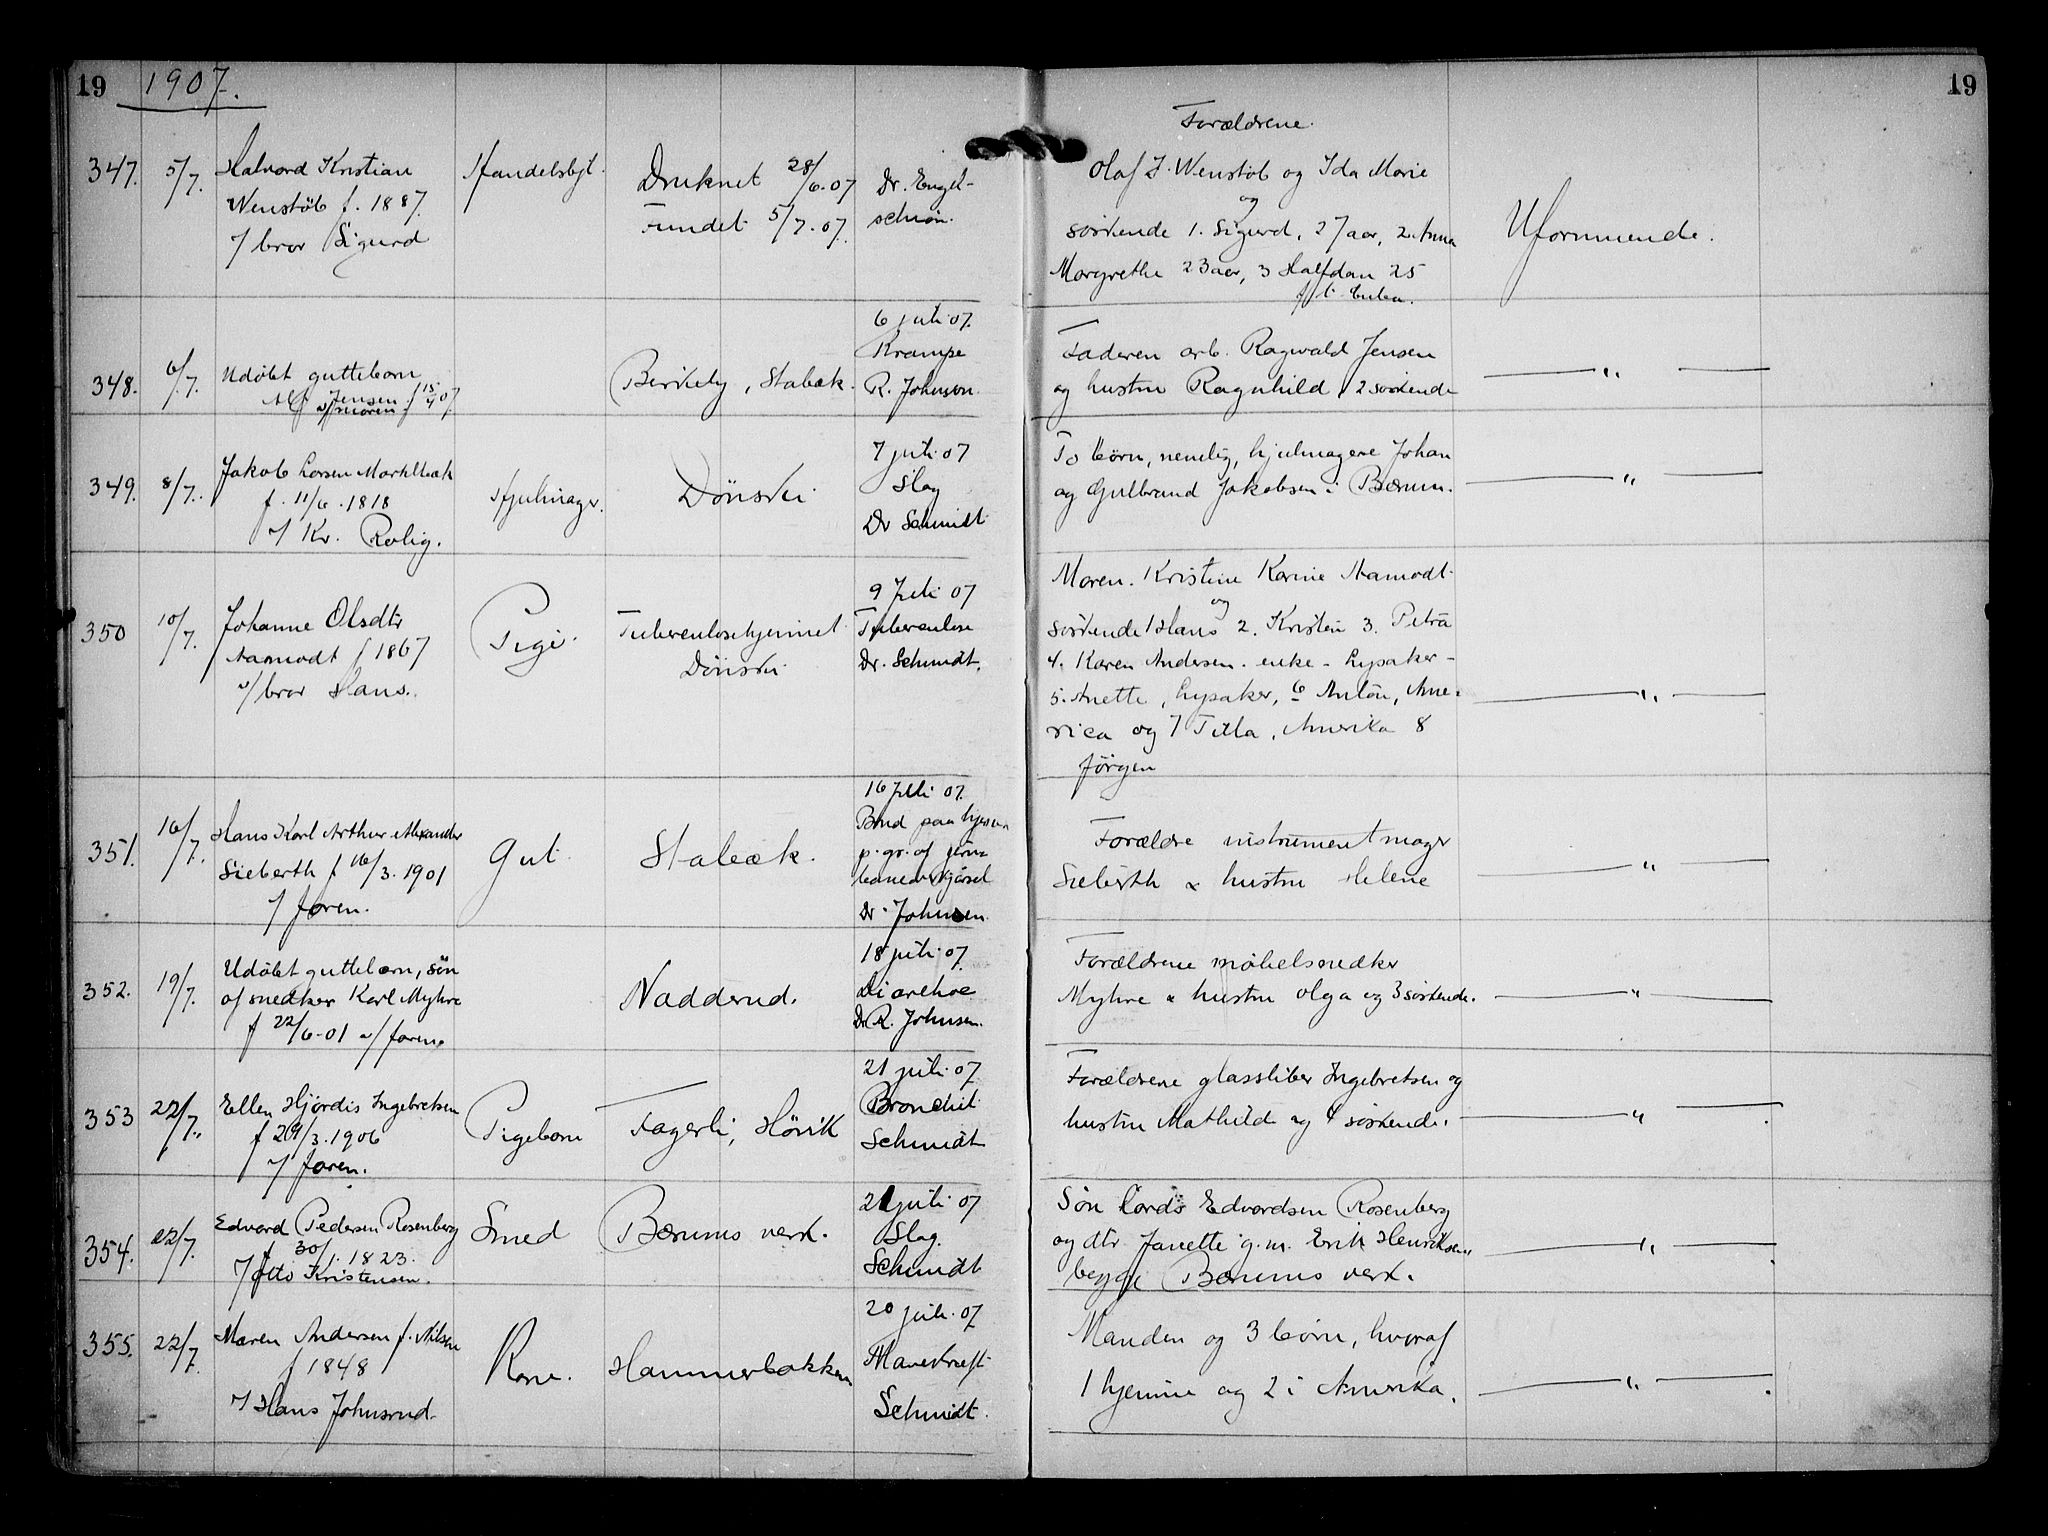 19 1907. 19
347. 5/7. Halvard Kristian
Wenstöb f. 1887.
v/ bror Sigurd
Handelsbjt.
Druknet 28/6.07
Fundet 5/7.07.
Dr. Engel-
schiøn.
Forældrene.
Olaf J. Wenstöb og Ida Marie
og
söskende 1. Sigurd, 27 aar, 2. Anna
Margrethe 23 aar, 3 Halfdan 25
Uformuende.
348. 6/7. Udöbt guttebarn
Alf Jensen f 15/4 07.
v/ moren
Birkely, Stabæk.
6 juli 07.
Krampe
R. Johnsen.
Faderen arb. Ragwald Jensen
og hustru Ragnhild, 2 söskende
— " —
349. 8/7. Jakob Larsen Markbæk
f. 11/6.1818
v/ Kr. Rolig.
Hjulmager.
Dönski
7 juli 07
Slag
Dr Schmidt
To börn, nemlig, hjulmagere Johan
og Gulbrand Jakobsen i Bærum.
— " —
350 10/7. Johanne Olsdtr
Aamodt f 1867
v/ bror Hans.
Pige.
Tuberculosehjemmet
Dönski
9 Juli 07
Tuberculose
Dr. Schmidt.
Moren. Kristine Karine Aamodt
og
söskende 1 Hans 2. Kristen 3. Petra
4. Karen Andersen. enke - Lysaker -
5. Anette, Lysaker, 6 Anton, Ame-
rica og 7 Tilla, Amerika 8
Jörgen
— " —
351. 16/7. Hans Karl Arthur Alexander
Sieberth f 16/3.1901
v/ faren.
Gut.
Stabæk.
16 Juli 07.
Brud paa hjernen
p. gr. af jern-
baneoverkjörsel
Dr. Johnsen.
Forældre instrumentmager
Sieberth & hustru Helene
— " —
352. 19/7. Udöbt guttebarn, sön
af snedker Karl Myhre
f 22/6-01 v/ faren
Nadderud.
18 juli 07.
Diarehoe
Dr R. Johnsen.
Forældrene möbelsnedker
Myhre & hustru Olga og 3 söskende.
— " —
353 22/7. Ellen Hjördis Ingebretsen
f 29/3.1906
v/ faren.
Pigebarn
Fagerli, Hövik
21 juli 07
Bronchit
Schmidt
Forældrene glassliber Ingebretsen og
hustru Mathild og 4 söskende.
— " —
354. 22/7. Edvard Pedersen Rosenberg
f 30/1.1823.
v/ Otto Kristensen.
Smed
Bærums verk.
21 juli 07
Slag.
Schmidt
Sön Lards Edvardsen Rosenberg
og dtr. Janette g.m. Erik Henriksen,
begge Bærums verk.
— " —
355. 22/7. Maren Andersen f. Nilsen
f 1848
v/ Hans Johnsrud
Kone.
Hammerbakken
20 juli 07
Mavekræft
Schmidt.
Manden og 3 börn, hvoraf
1 hjemme og 2 i Amerika.
— " —